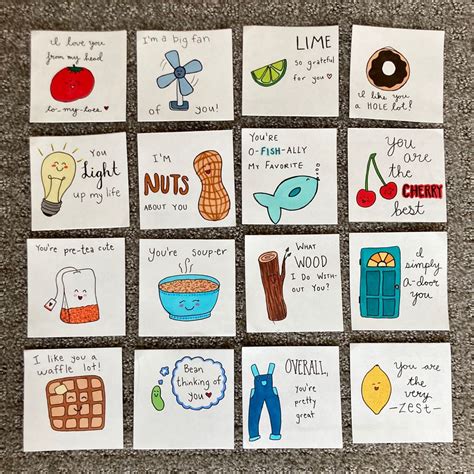 I love you
from my head
to-my-toes
I'm a big fan
of you!
LIME
so grateful
for you
I like you
a HOLE lot!
You
Light
up my life
I'M
NUTS
ABOUT YOU
YOU'RE
O-FISH-ALLY
MY FAVORITE
You
are
the
CHERRY
best
You're pre-tea cute
You're soup-er
WHAT
WOOD
I DO WITH-
OUT YOU?
I
simply
A-door
you
I like you a
waffle lot!
Bean
thinking of
you
OVERALL,
you're
pretty
great
You are
the
very
-ZEST-